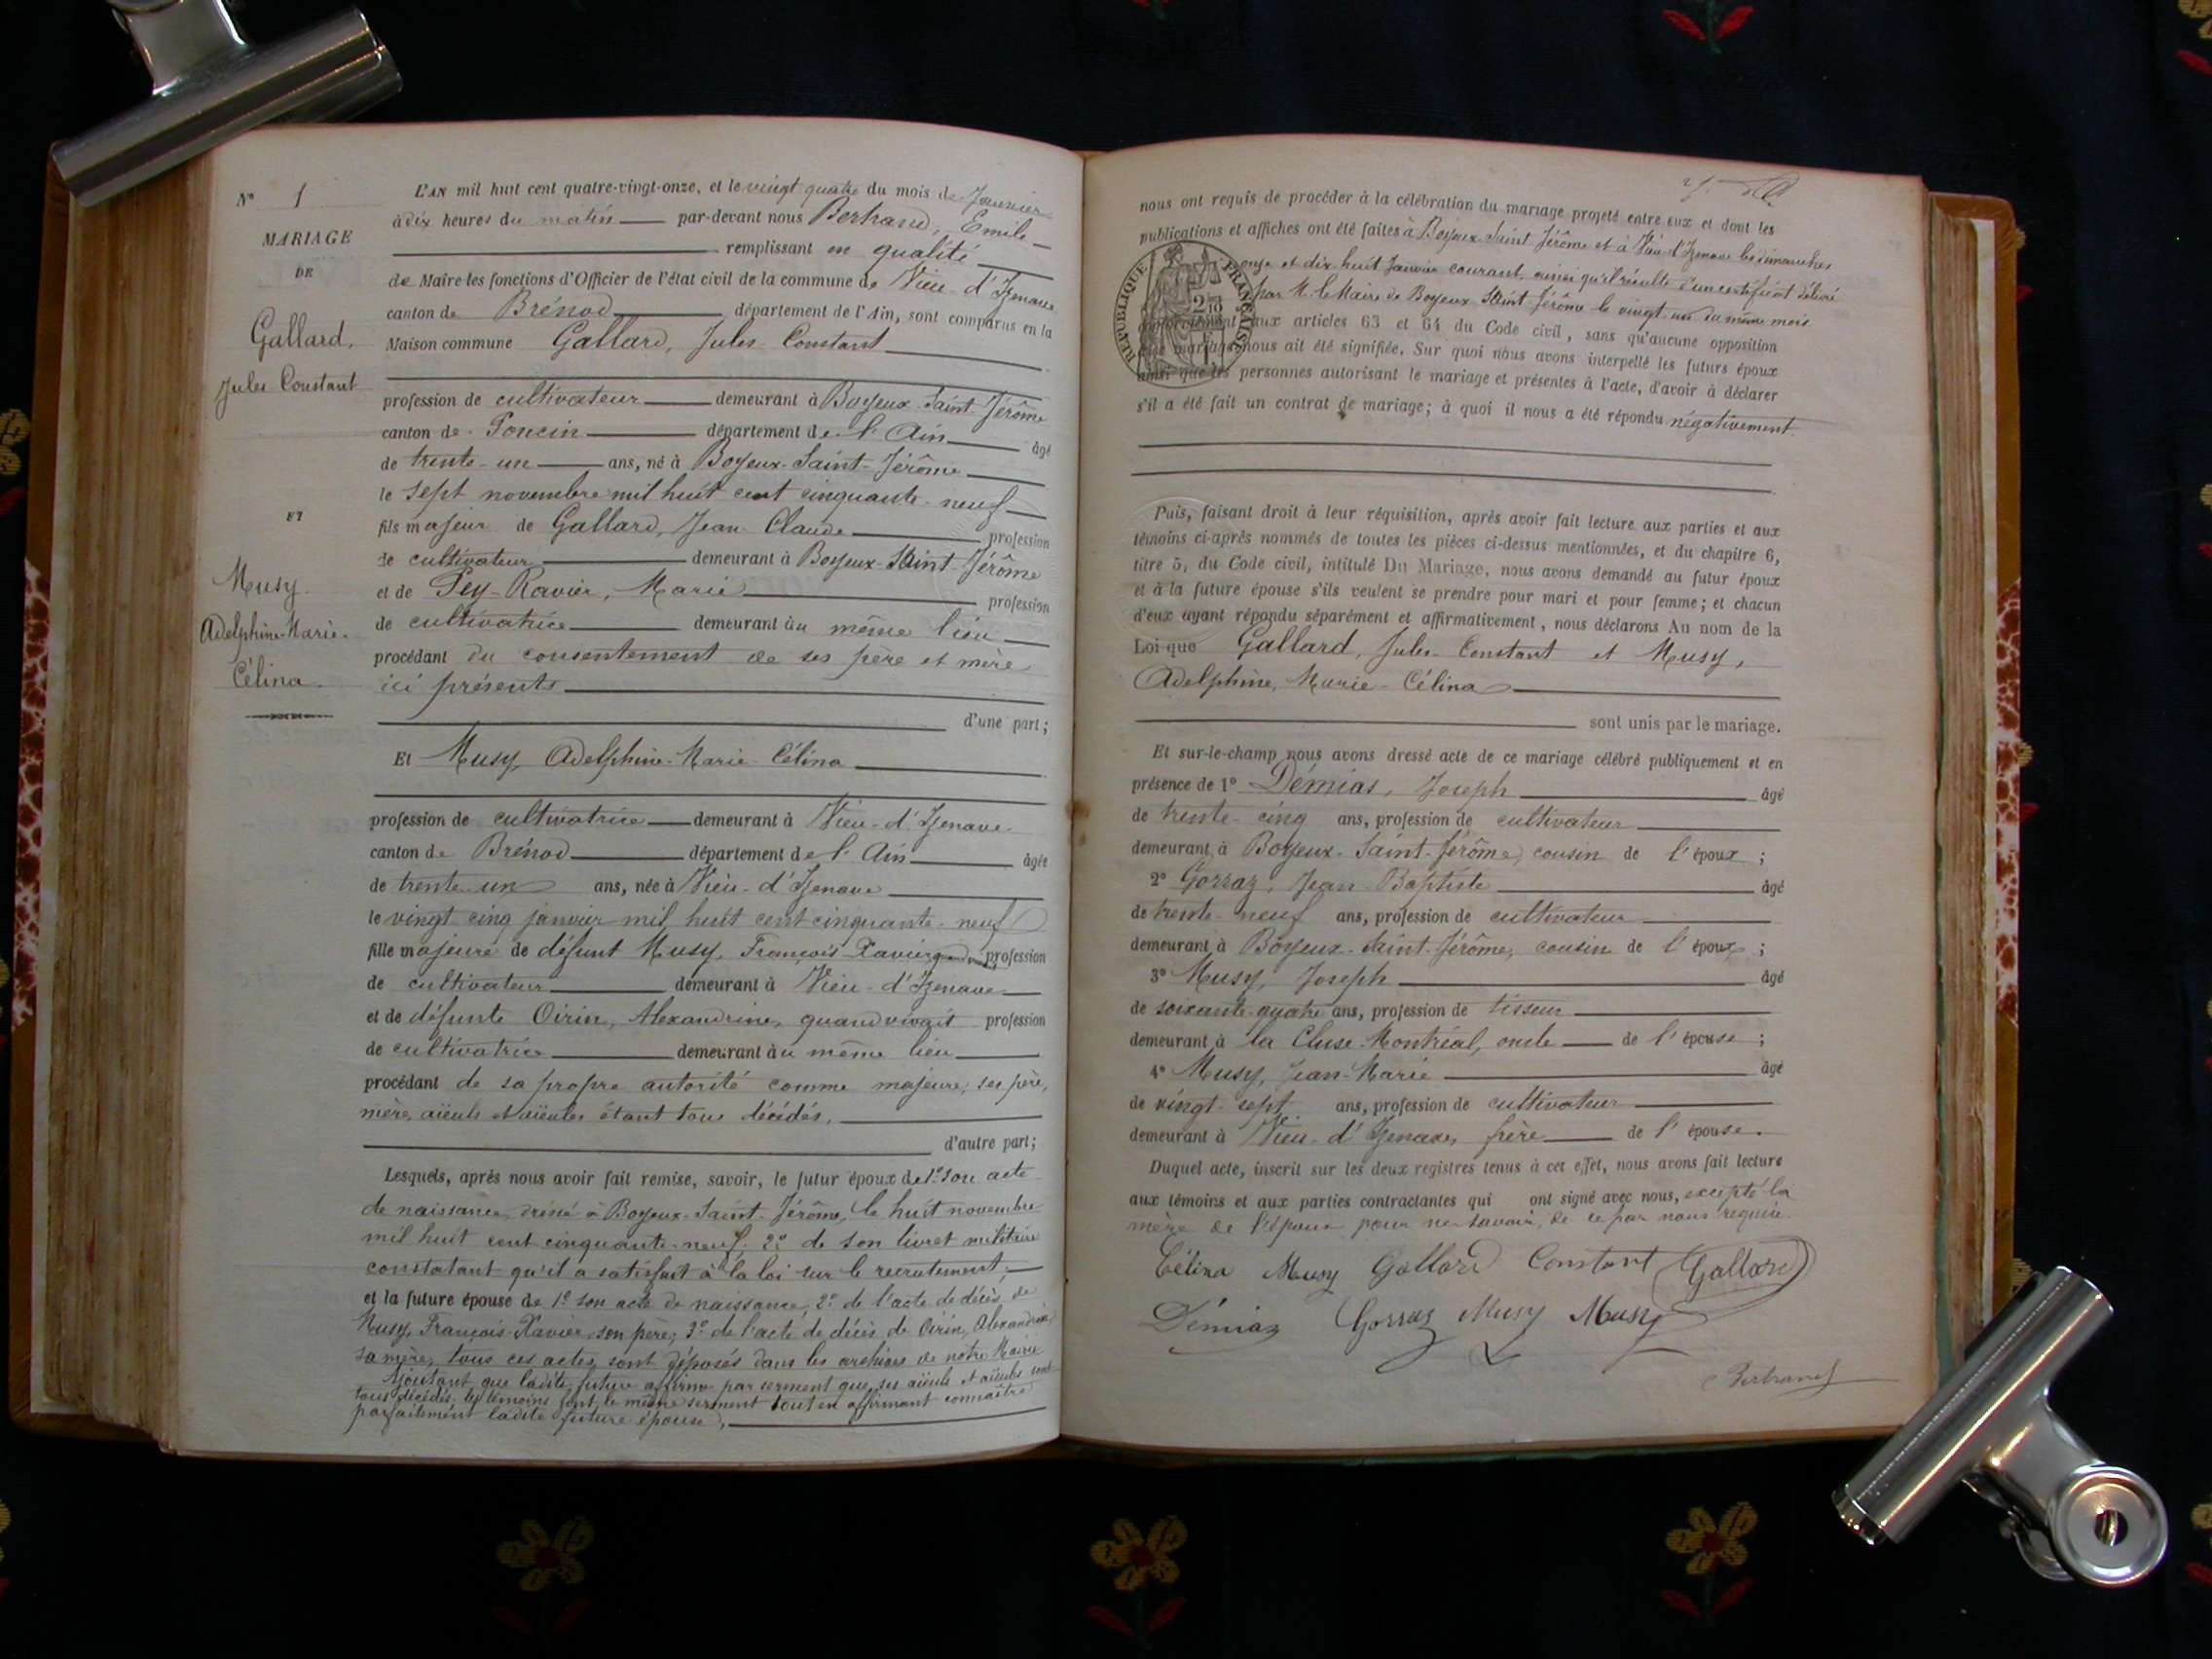 N° 1
MARIAGE
DE
Gallard,
Jules Constant
ET
Musy
Adelphine-Marie-
Célina.
L'AN mil huit cent quatre-vingt-onze, et le vingt quatre du mois de Janvier
à dix heures du matin par-devant nous Bertrand, Emile
remplissant en qualité
de Maire les fonctions d'Officier de l'état civil de la commune de Vieu-d'Izenave
canton de Brénod département de l'Ain, sont comparus en la
Maison commune Gallard, Jules Constant
profession de cultivateur demeurant à Boyeux-Saint-Jérôme
canton de Poncin département de l'Ain âgé
de trente-un ans, né à Boyeux-Saint-Jérôme
le sept novembre mil huit cent cinquante-neuf
fils majeur de Gallard, Jean-Claude profession
de cultivateur demeurant à Boyeux-Saint-Jérôme
et de Pey-Ravier, Marie profession
de cultivatrice demeurant au même lieu
procédant du consentement de ses père et mère
ici présents
d'une part;
Et Musy, Adelphine-Marie-Célina
profession de cultivatrice demeurant à Vieu-d'Izenave
canton de Brénod département de l'Ain âgée
de trente-un ans, née à Vieu-d'Izenave
le vingt cinq janvier mil huit cent cinquante-neuf
fille majeure de défunt Musy, François-Xavier profession
de cultivateur demeurant à Vieu-d'Izenave
et de défunte Oirin, Alexandrine, quand vivait profession
de cultivatrice demeurant au même lieu
procédant de sa propre autorité comme majeure, ses père,
mère, aïeuls et aïeules étant tous décédés.
d'autre part;
Lesquels, après nous avoir fait remise, savoir, le futur époux de 1° son acte
de naissance dressé à Boyeux-Saint-Jérôme, le huit novembre
mil huit cent cinquante-neuf; 2° de son livret militaire
constatant qu'il a satisfait à la loi sur le recrutement;
et la future épouse de 1° son acte de naissance, 2° de l'acte de décès de
Musy, François-Xavier, son père; 3° de l'acte de décès de Oirin, Alexandrine
sa mère; tous ces actes sont déposés dans les archives de notre Mairie
Ajoutant que ladite future affirme par serment que ses aïeuls et aïeules sont
tous décédés, les témoins font le même serment tout en affirmant connaître
parfaitement ladite future épouse,
nous ont requis de procéder à la célébration du mariage projeté entre eux et dont les
publications et affiches ont été faites à Boyeux-Saint-Jérôme et à Vieu-d'Izenave les dimanches
onze et dix huit Janvier courant, ainsi qu'il résulte d'un certificat délivré
par M. le Maire de Boyeux-Saint-Jérôme le vingt-un du même mois
conformément aux articles 63 et 64 du Code civil, sans qu'aucune opposition
mariage nous ait été signifiée. Sur quoi nous avons interpellé les futurs époux
ainsi que les personnes autorisant le mariage et présentes à l'acte, d'avoir à déclarer
s'il a été fait un contrat de mariage; à quoi il nous a été répondu négativement.
RÉPUBLIQUE FRANÇAISE
Puis, faisant droit à leur réquisition, après avoir fait lecture aux parties et aux
témoins ci-après nommés de toutes les pièces ci-dessus mentionnées, et du chapitre 6,
titre 5, du Code civil, intitulé Du Mariage, nous avons demandé au futur époux
et à la future épouse s'ils veulent se prendre pour mari et pour femme; et chacun
d'eux ayant répondu séparément et affirmativement, nous déclarons Au nom de la
Loi que Gallard, Jules-Constant et Musy,
Adelphine, Marie-Célina
sont unis par le mariage.
Et sur-le-champ nous avons dressé acte de ce mariage célébré publiquement et en
présence de 1° Démias, Joseph âgé
de trente-cinq ans, profession de cultivateur
demeurant à Boyeux-Saint-Jérôme, cousin de l'époux;
2° Gorraz, Jean-Baptiste âgé
de trente-neuf ans, profession de cultivateur
demeurant à Boyeux-Saint-Jérôme, cousin de l'époux;
3° Musy, Joseph âgé
de soixante-quatre ans, profession de tisseur
demeurant à la Cluse-Montréal, oncle de l'épouse;
4° Musy, Jean-Marie âgé
de vingt-sept ans, profession de cultivateur
demeurant à Vieu-d'Izenave, frère de l'épouse.
Duquel acte, inscrit sur les deux registres tenus à cet effet, nous avons fait lecture
aux témoins et aux parties contractantes qui ont signé avec nous, excepté la
mère de l'époux pour ne savoir, de ce par nous requise.
Célina Musy Gallard Constant Gallard
Démiaz Gorraz Musy Musy
Bertrand